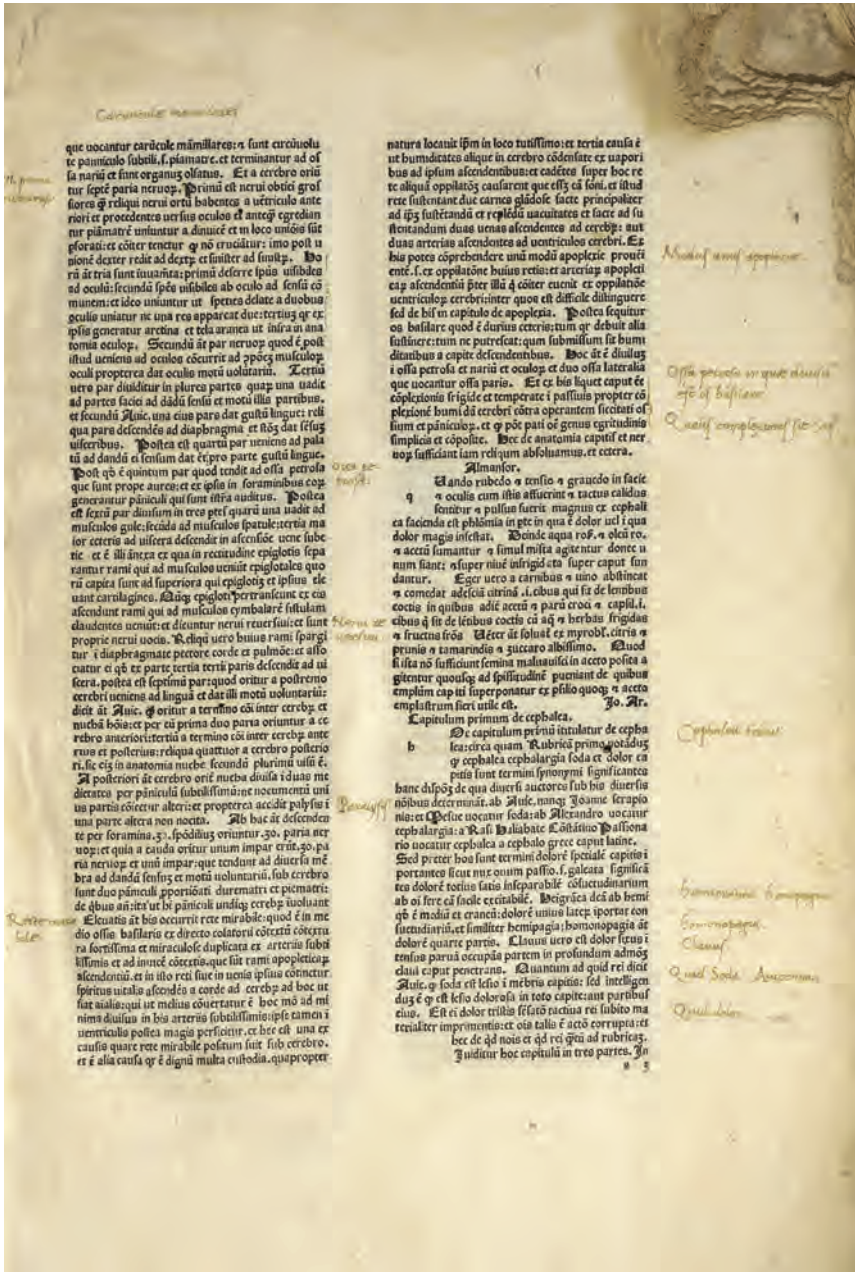 Caruncule mamillares
que uocantur carūcule māmillares: ⁊ sunt circūuolu
te panniculo subtili .s. piamatre. et terminantur ad os
sa nariū et sunt organuʒ olfatus. Et a cerebro oriū
tur septē paria neruoꝝ. Primū est nerui obtici gros
siores ꝙ reliqui nerui ortū habentes a uētriculo ante
riori et procedentes uersus oculos et anteꝙ egredian
tur piamatrē uniuntur a diuinicē et in loco unióis sūt
pforati: et cōiter tenetur ꝙ nō cruciātur: imo post u
nionē dexter redit ad dextꝝ et sinister ad sinistꝝ. Ho
rū āt tria sunt iuuamēta: primū deferre spūs uisibiles
ad oculū: secundū spēs uisibiles ab oculo ad sensū cō
munem: et ideo uniuntur ut speties delate a duobus
oculis uniatur ne una res appareat due: tertiuʒ qr ex
ipsis generatur aretina et tela aranea ut infra in ana
tomia oculoꝝ. Secundū āt par neruoꝝ quod ē post
istud ueniens ad oculos cōcurrit ad ꝓpōeʒ musculoꝝ
oculi propterea dat oculis motū uolūtariū. Tertiū
uero par diuiditur in plures partes quaꝝ una uadit
ad partes faciei ad dādū sensū et motū illis partibus.
et secundū Auic. una eius pars dat gustū lingue: reli
qua pars descendēs ad diaphragma et stōʒ dat sēsuʒ
uisceribus. Postea est quartū par ueniens ad pala
tū ad dandū ei sensum dat ēt pro parte gustū lingue.
Post qd ē quintum par quod tendit ad ossa petrosa
que sunt prope aures: et ex ipsis in foraminibus eoꝝ
generantur pāniculi qui sunt istra auditus. Postea
est sextū par diuisum in tres ptes quarū una uadit ad
musculos gule: secūda ad musculos spatule: tertia ma
ior ceteris ad uiscera descendit in ascensióe uene sube
tic et ē illi ānexa ex qua in rectitudine epiglotis sepa
rantur rami qui ad musculos ueniūt epiglotales quo
rū capita sunt ad superiora qui epiglotiʒ et ipsius ele
uant cartilagines. epigloti pertranseunt ex eis
ascendunt rami qui ad musculos cymbalarē fistulam
claudentes ueniūt: et dicuntur nerui reuersiui: et sunt
proprie nerui uocis. Reliqū uero huius rami spargi
tur ī diaphragmate pectore corde et pulmōe: et asso
ciatur ei qd ex parte tertia tertii paris descendit ad ui
scera. postea est septimū par: quod oritur a postremo
cerebri ueniens ad linguā et dat illi motū uoluntariū:
dicit āt Auic. ꝙ oritur a termino cōi inter cerebꝝ et
nucha hōis: et per eū prima duo paria oriuntur a ce
rebro anteriori: tertiū a termino cōi inter cerebꝝ ante
rius et posterius: reliqua quattuor a cerebro posterio
ri. sic eiʒ in anatomia nuche secundū plurimū uisū ē.
A posteriori āt cerebro orit̄ nucha diuisa ī duas me
dietates per pāniculū subtilissimū: ne nocumentū uni
us partis cōicetur alteri: et propterea accidit palysis ī
una parte altera non nocita. Ab hac āt descenden
te per foramina .30. spōdiliuʒ oriuntur .30. paria ner
uoꝝ: et quia a cauda oritur unum impar erūt .30. pa
ria neruoꝝ et unū impar: que tendunt ad diuersa mē
bra ad dandā sensuʒ et motū uoluntariū. sub cerebro
sunt duo pāniculi ꝓportiōati durematri et piematri:
de qbus añ: ita ut hi pāniculi undiqʒ cerebꝝ īuoluant
Eleuatis āt his occurrit rete mirabile: quod ē in me
dio ossis basilaris ex directo colatorii cōtextū cōtextu
ra fortissima et miraculose duplicata ex arteriis subti
lissimis et ad inuicē cōtextis. que sūt rami apopleticaꝝ
ascendentiū. et in isto reti siue in uenis ipsius cōtinetur
spiritus uitalis ascendēs a corde ad cerebꝝ ad hoc ut
fiat aialis: qui ut melius cōuertatur ē hoc mō ad mi
nima diuisus in his arteriis subtilissimis: ipse tamen ī
uentriculis postea magis perficitur. et hec est una ex
causis quare rete mirabile positum fuit sub cerebro.
et ē alia causa qr ē dignū multa custodia. quapropter
Rete mira
bile
natura locauit ipm in loco tutissimo: et tertia causa ē
ut humiditates alique in cerebro cōdensate ex uapori
bus ad ipsum ascendentibus: et cadētes super hoc re
te aliquā oppilatōʒ causarent que essʒ cā sōni. et istud
rete sustentant due carnes glādose facte principaliter
ad ipʒ sustētandū et replēdū uacuitates et facte ad su
stentandum duas uenas ascendentes ad cerebꝝ: aut
duas arterias ascendentes ad uentriculos cerebri. Ex
his potes cōprehendere unū modū apoplexie prouēi
entē .s. ex oppilatōne huius retis: et arteriaꝝ apopleti
caꝝ ascendentiū p̄ter illā ꝙ cōiter euenit ex oppilatiōe
uentriculoꝝ cerebri: inter quos est difficile distinguere
sed de his in capitulo de apoplexia. Postea sequitur
os basilare quod ē durius ceteris: tum qr debuit alia
sustinere: tum ne putrescat: quum submissum sit humi
ditatibus a capite descendentibus. Hoc āt ē diuisuʒ
ī ossa petrosa et nariū et oculoꝝ et duo ossa lateralia
que uocantur ossa paris. Et ex his liquet caput ēē
cōplexionis frigide et temperate ī passiuis propter cō
plexionē humidā cerebri cōtra operantem siccitati os
sium et pāniculoꝝ. et ꝙ pōt pati oē genus egritudinis
simplicis et cōposite. Hec de anatomia capitis et ner
uoꝝ sufficiant iam reliqum absoluamus. et cetera.
Almansor.
Uando rubedo ⁊ tensio ⁊ grauedo in facie
q ⁊ oculis cum istis affuerint ⁊ tactus calidus
sentitur ⁊ pulsus fuerit magnus ex cephali
ca facienda est phlōmia in pte in qua ē dolor uel ī qua
dolor magis infestat. Deinde aqua ros. ⁊ oleū ro.
⁊ acetū sumantur ⁊ simul mista agitentur donec u
num fiant: ⁊ super niuē infrigidata super caput fun
dantur. Eger uero a carnibus ⁊ uino abstineat
⁊ comedat adesciā citrinā .i. cibus qui fit de lentibus
coctis in quibus adiē acetū ⁊ parū croci ⁊ capsil. i.
cibus ꝙ fit de lētibus coctis cū aq̄ ⁊ herbas frigidas
⁊ fructus frōs Uēter āt soluat̄ ex myrobl. citris ⁊
prunis ⁊ tamarindis ⁊ zuccaro albissimo. Quod
si ista nō sufficiunt semina maluauisci in aceto posita a
gitentur quousqʒ ad spissitudinē pueniant de quibus
emplūm capiti superponatur ex psilio quoqʒ ⁊ aceto
emplastrum fieri utile est. Jo. Ar.
Capitulum primum de cephalea.
De capitulum primū intitulatur de cepha
h lea: circa quam Rubricā primo notāduʒ
ꝙ cephalea cephalargia soda et dolor ca
pitis sunt termini synonymi significantes
hanc dispōʒ de qua diuersi auctores sub his diuersis
nōibus determināt. ab Auic. nanqʒ Joanne serapio
nis: et Mesue uocatur soda: ab Alexandro uocatur
cephalargia: a Rasi Haliabate Cōstātino Passiona
rio uocatur cephalea a cephalo grece caput latine.
Sed preter hos sunt termini dolorē spetialē capitis ī
portantes sicut nux ouum passio .s. galeata significā
tes dolorē totius satis inseparabilē cōsuetudinarium
ab oi fere cā facile excitabilē. Heigrāea dcā ab hemi
qd ē mediū et craneū: dolorē unius lateꝝ iportat con
suetudiariū. et similiter hemipagia: homonopagia āt
dolorē quarte partis. Clauus uero est dolor fixus ī
tensus paruā occupās partem in profundum admōʒ
claui caput penetrans. Quantum ad quid rei dicit
Auic. ꝙ soda est lesio ī mēbris capitis: sed intelligen
duʒ ē ꝙ est lesio dolorosa in toto capite: aut partibus
eius. Est ei dolor tristis sēsatō tactiua rei subito ma
terialiter imprimentis: et ois talis ē actō corrupta: et
hec de qd nois et qd rei q̄tū ad rubricaʒ.
Iuiditur hoc capitulū in tres partes. In
Clauus